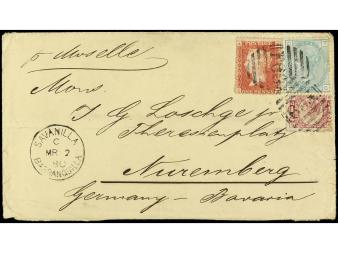 p. Moselle
Mons.
J. G. Loschge jr.
Theresienplatz
Nuremberg
Germany - Bavaria
SAVANILLA
C
MR 2
80
BARRANQUILLA